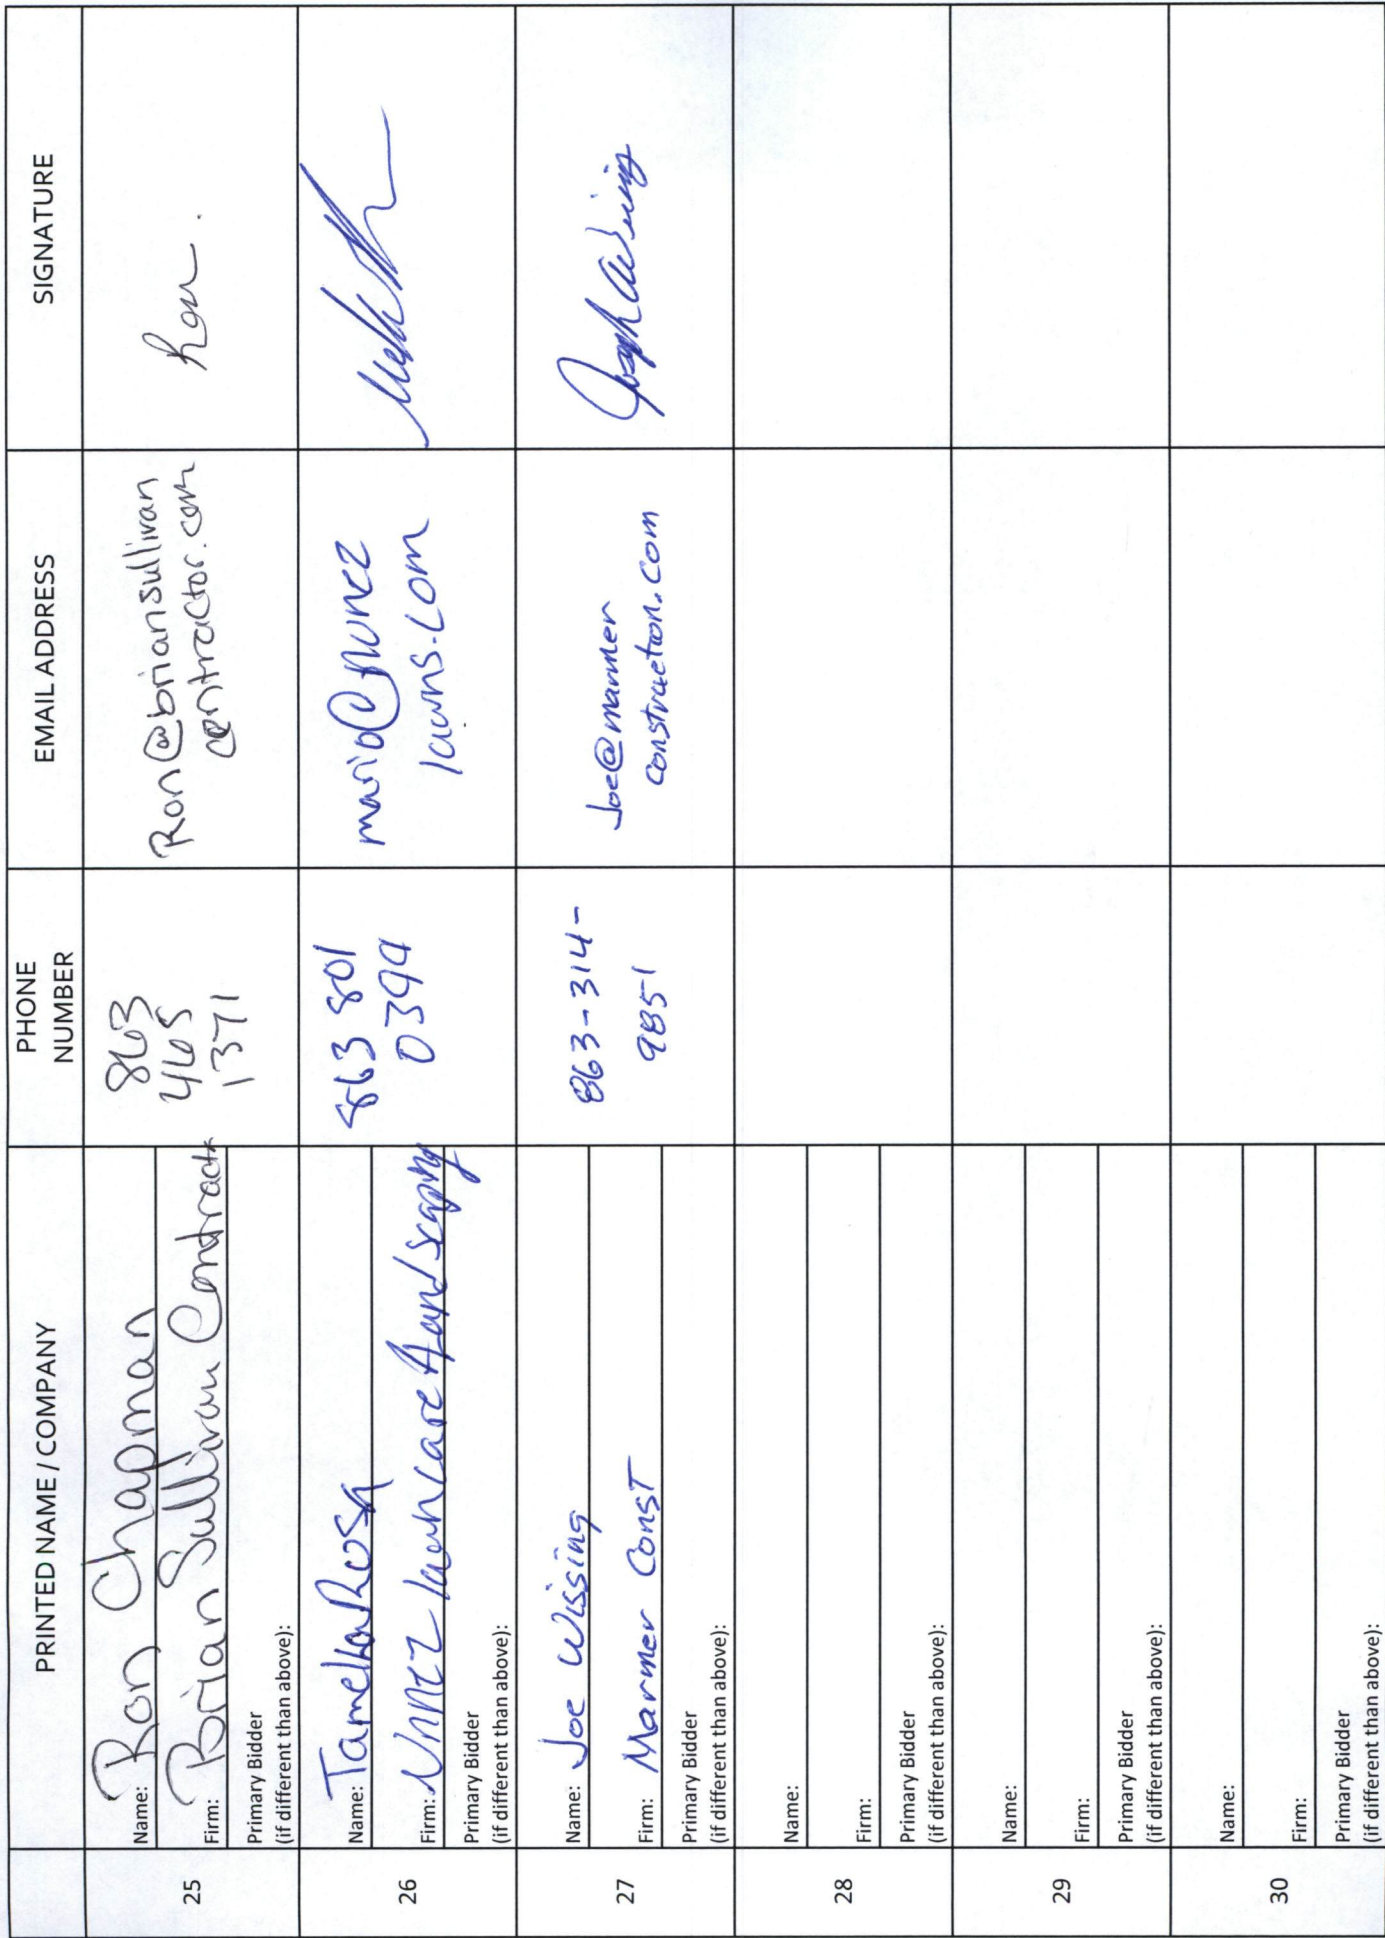 PRINTED NAME / COMPANY
PHONE
NUMBER
EMAIL ADDRESS
SIGNATURE
25
Name: Ron Chapman
Firm: Brian Sullivan Contractr
Primary Bidder
(if different than above):
863
465
1371
Ron@briansullivan
contractor.com
Ron
26
Name:
Firm: Nunez lawncare
Primary Bidder
(if different than above):
863 801
0394
mario@nunez
lawns.com
27
Name: Joe Wissing
Firm: Marmer Const
Primary Bidder
(if different than above):
863-314-
9851
Joe@marmer
construction.com
Joseph Wissing
28
Name:
Firm:
Primary Bidder
(if different than above):
29
Name:
Firm:
Primary Bidder
(if different than above):
30
Name:
Firm:
Primary Bidder
(if different than above):